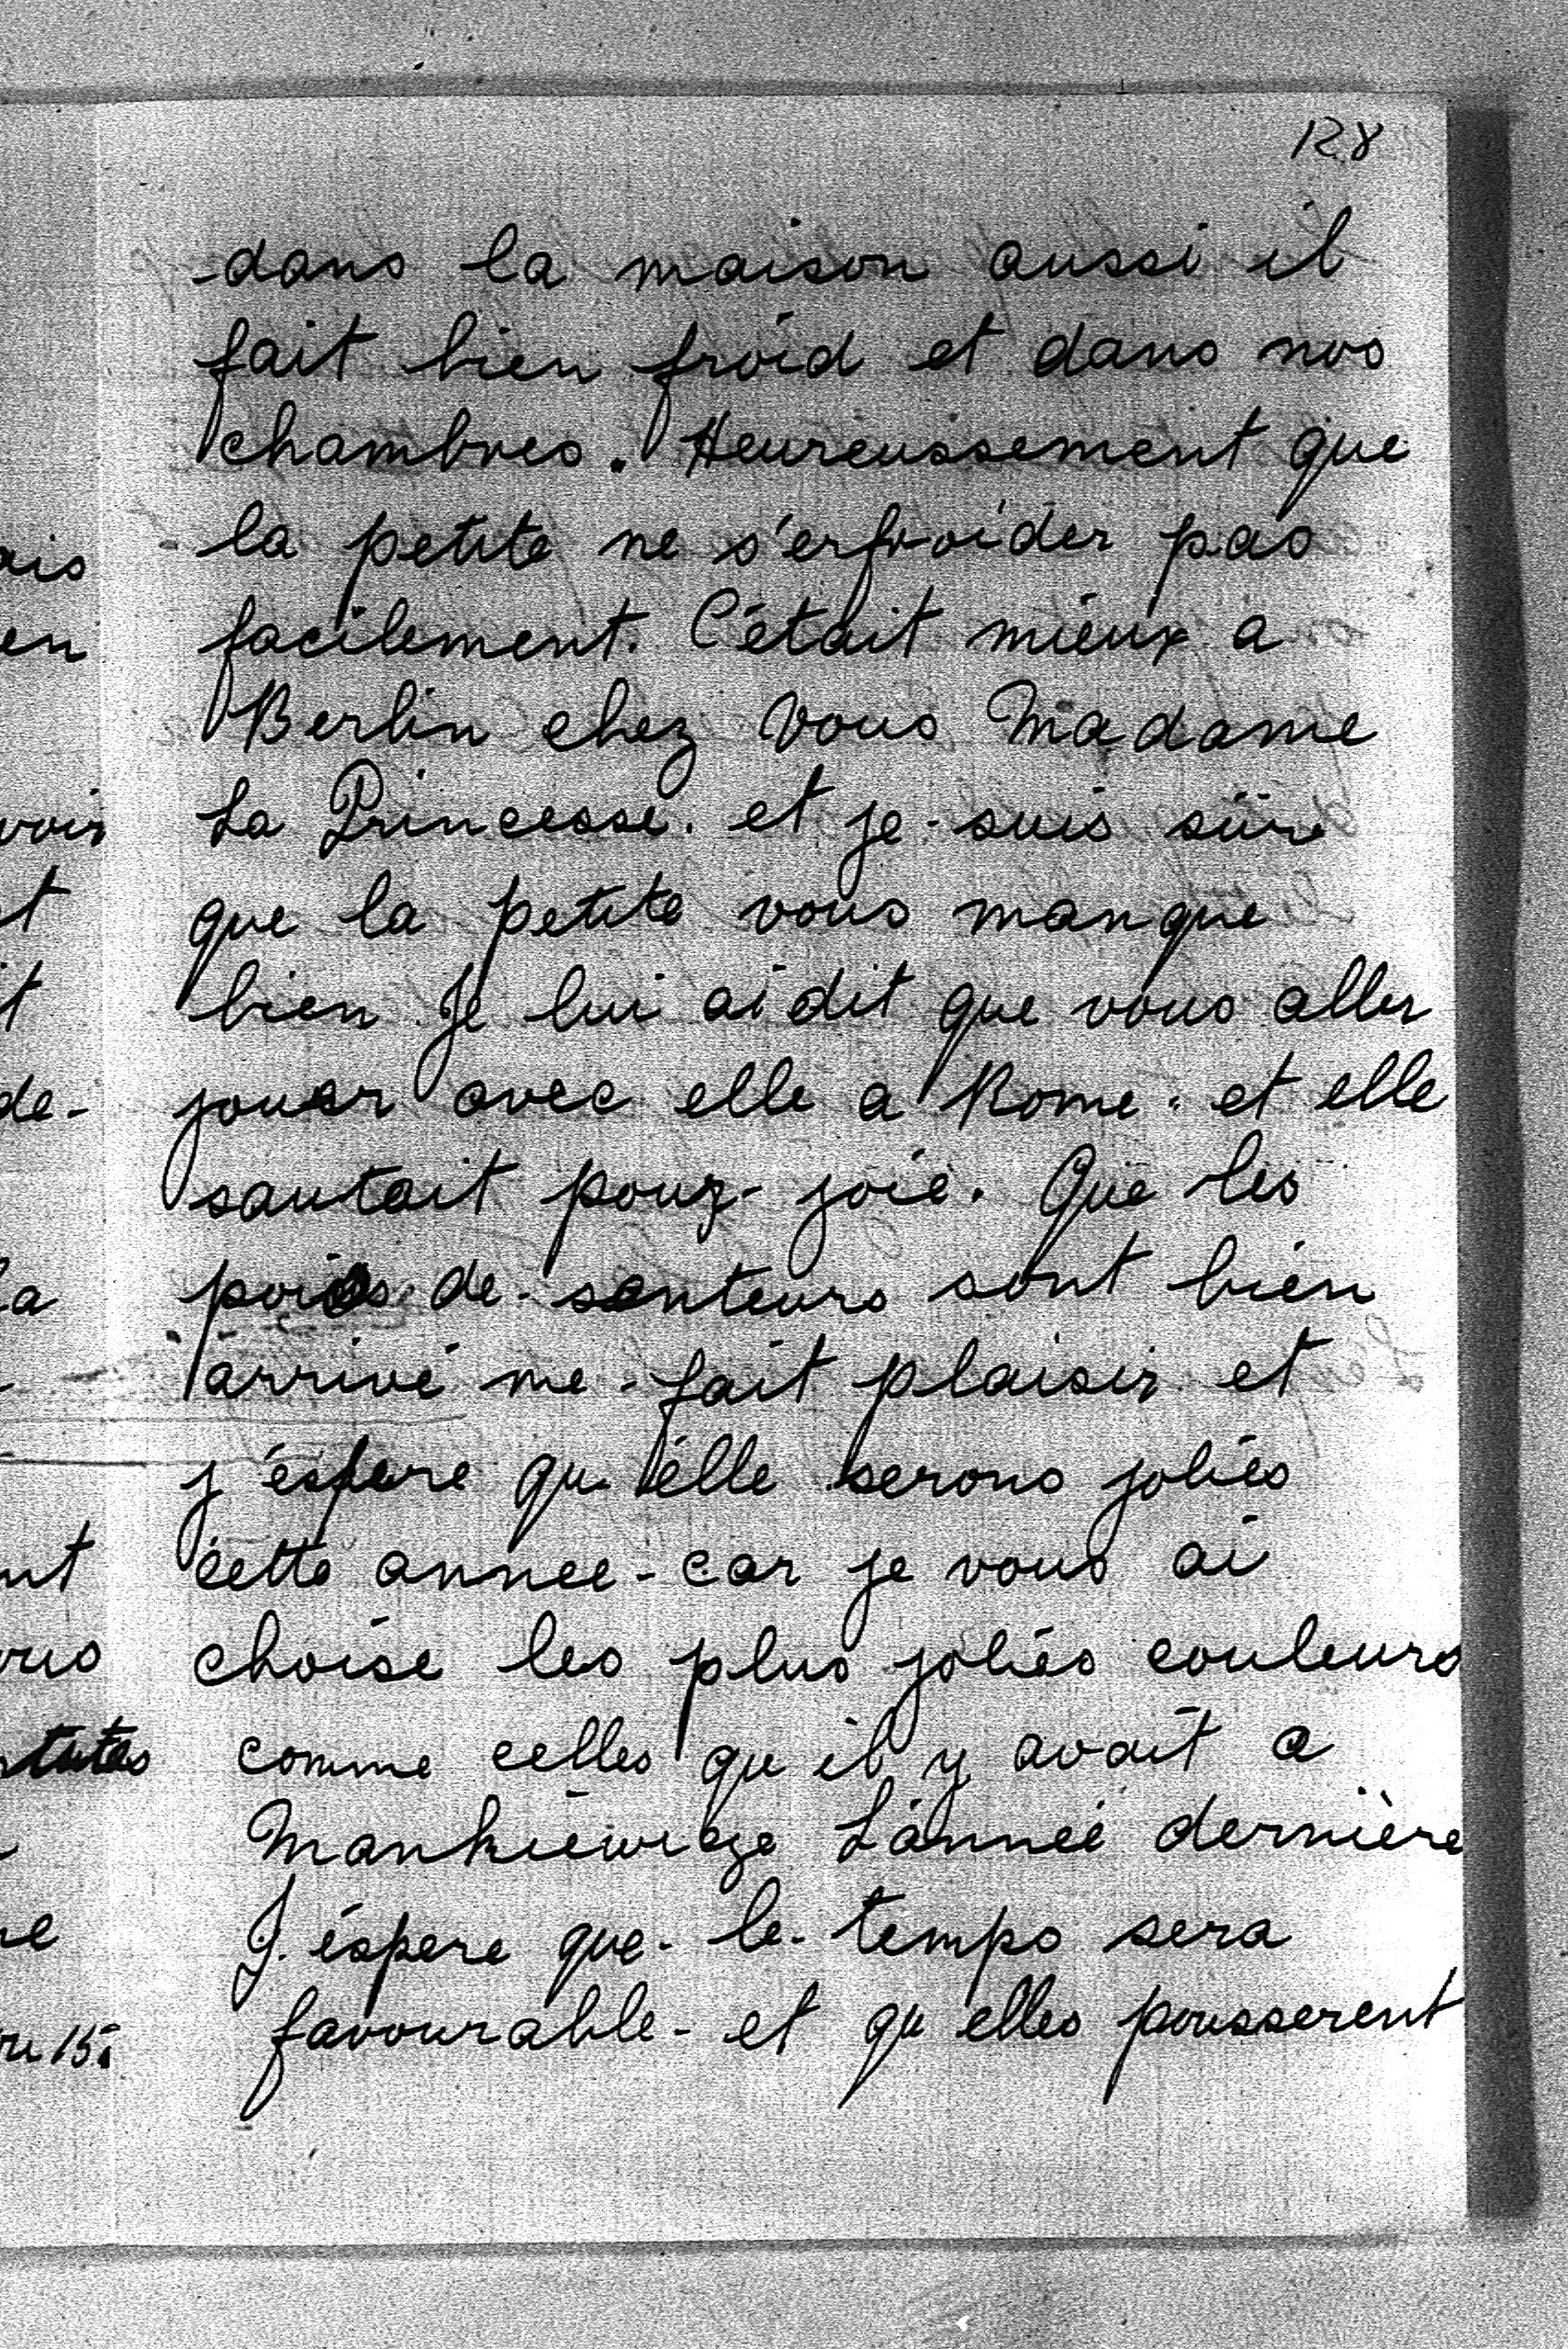 128
dans la maison aussi il
fait bien froid et dans nos
chambres. Heureussement que
la petite ne s'erfroider pas
facilement. C'était mieux a
Berlin chez vous Madame
La Princesse. et je suis sûre
que la petite vous manque
bien Je lui ai dit que vous aller
jouer avec elle a Rome. et elle
sautait pour joie. Que les
pois de senteurs sont bien
arrivé me fait plaisir et
j'éspere qu'élle serons jolies
cette annee - car je vous ai
choise les plus jolies couleurs
comme celles qu'il y avait a
Mankiewicze L'année dernière
J'éspere que le temps sera
favourable - et qu'elles pousserent